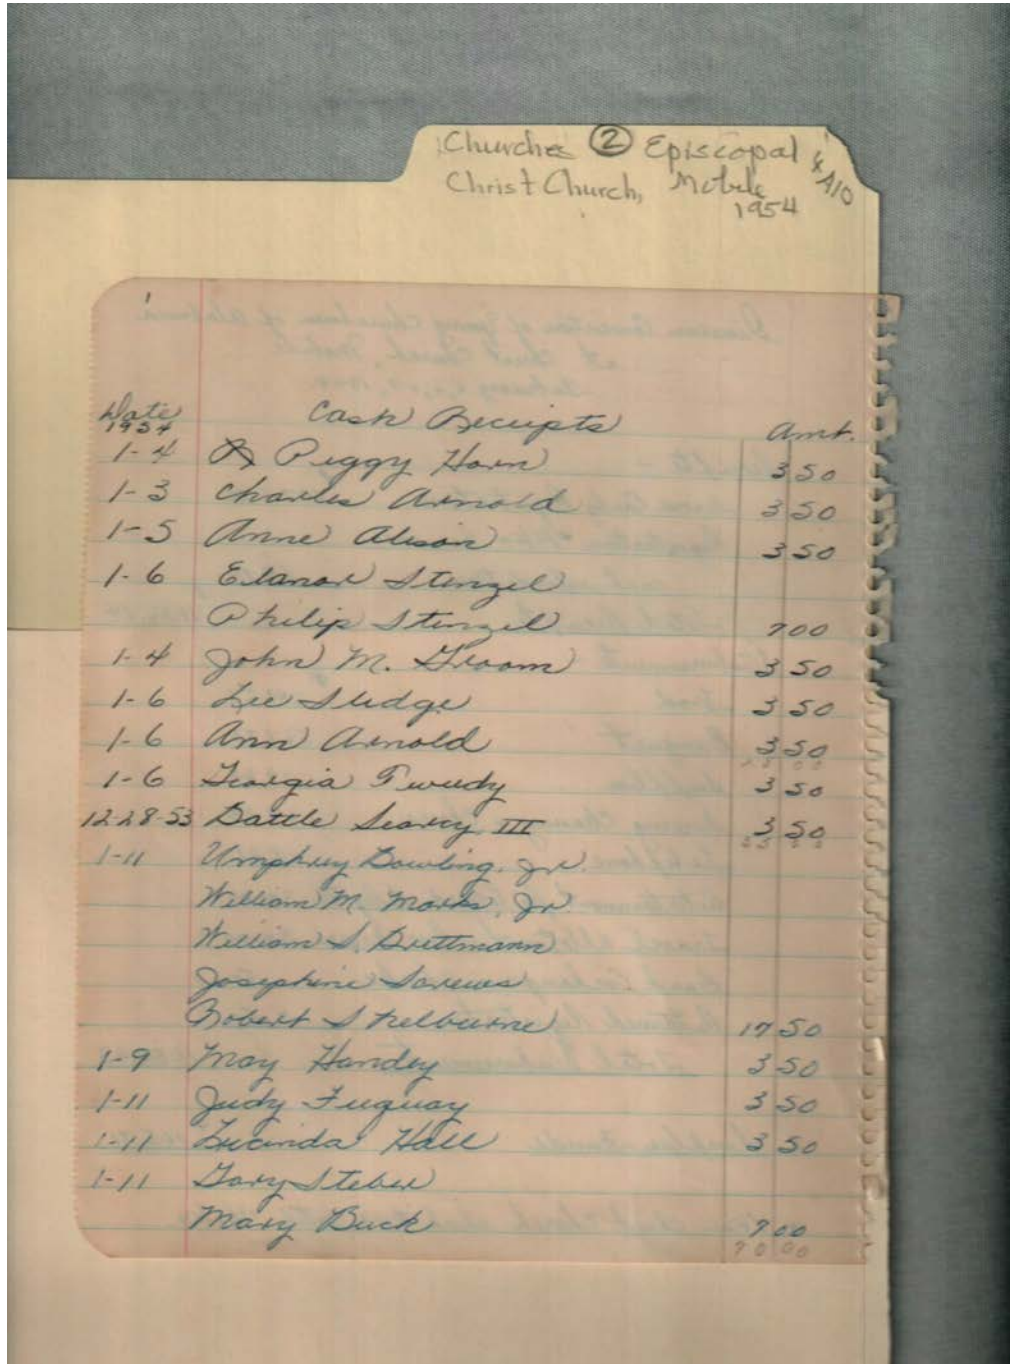 Churches ② Episcopal
Christ Church, Mobile
1954
& A10
Date Cash Receipts Amt.
1954
1-4 Peggy Horn 3 50
1-3 Charles Arnold 3 50
1-5 Anne Alison 3 50
1-6 Elanor Stenzel
Philip Stenzel 7 00
1-4 John M. Groom 3 50
1-6 Lee Sledge 3 50
1-6 Ann Arnold 3 50
1-6 Georgia Tweedy 3 50
12-28-53 Battle Searcy III 3 50
1-11 Umphrey Dowling, Jr.
William M. Marks, Jr
William S. Brettmann
Josephine Screws
Robert Shelburne 17 50
1-9 May Handey 3 50
1-11 Judy Fuquay 3 50
1-11 Lucinda Hall 3 50
1-11 Gary Steber
Mary Buck 7 00
70 00